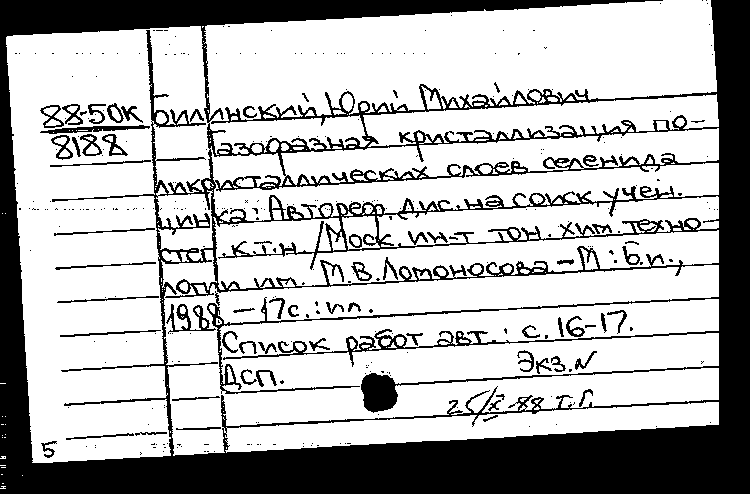 88-50К Билинский, Юрий Михайлович
8188 Газофазная кристаллизация по-
ликристаллических слоев селенида
цинка: Автореф. дис. на соиск. учен.
степ. к.т.н. / Моск. ин-т тон. хим. техно-
логии им. М.В. Ломоносова. – М : Б.и.,
1988. – 17с. : ил.
Список работ авт.: с. 16-17.
ДСП. Экз. N
25/X-88 Т.Г.
5